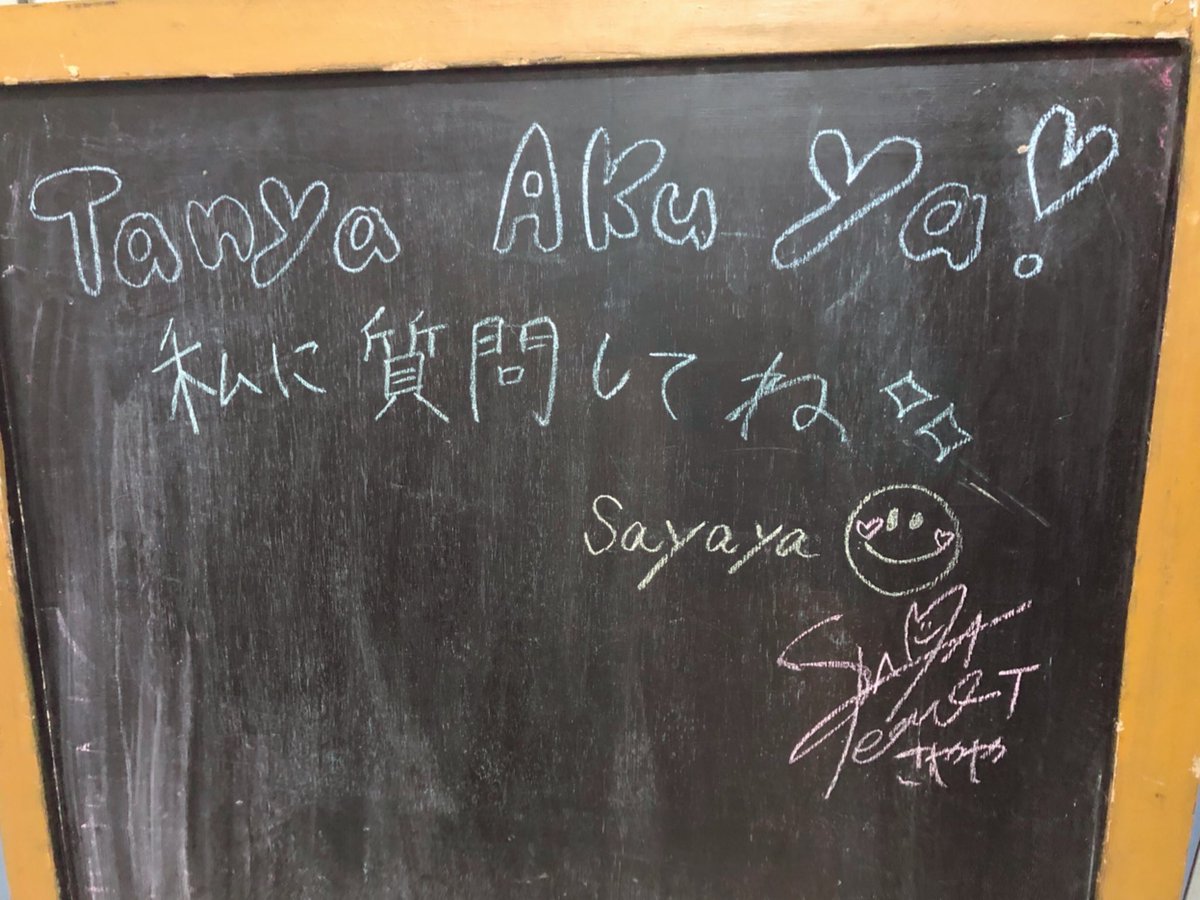 Tanya Aku Ya!
私に質問してね
Sayaya
さややや